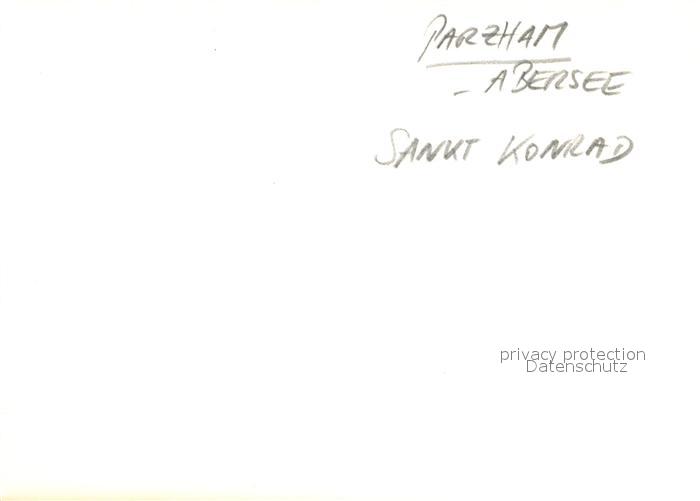 PARZHAM
- ABERSEE
SANKT KONRAD
privacy protection
Datenschutz